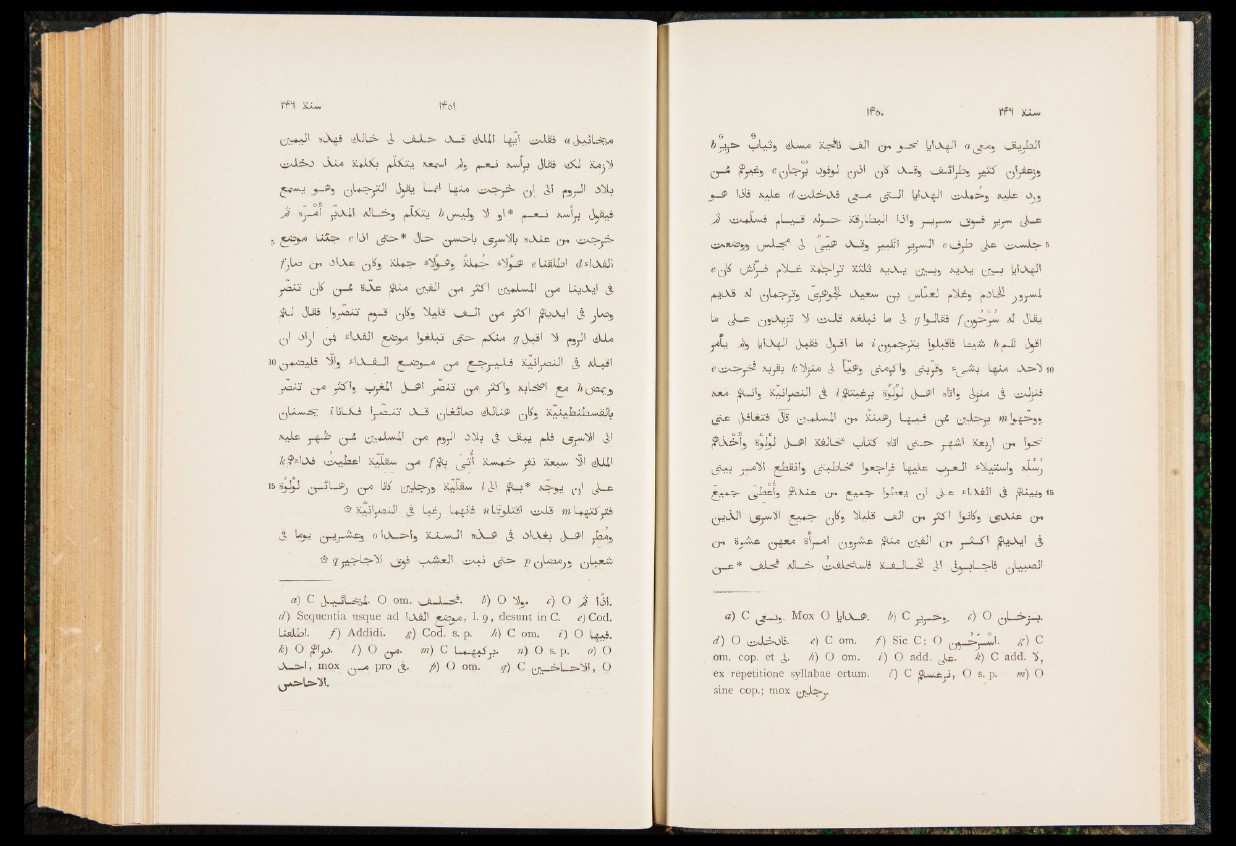 ١٤٥٠ سنة ٢٤٦
الطريق ومعى a الهدايا نحو من الف نافجة مسك وثيابُ حرير b
وزعفران كثير وطرائف وقد كان اذن لوفود بُرْجان c وغيرهم ممّن
ورد عليه وحُملت الهدايا التى معى فدخلت d عليه فاذا هو
على سرير فوق سرير واذا البطارقة حوله قيام فسلّمت ثم
5 جلست على طرف e السرير الكبير وقد هُيّئ لى مجلس ووضعت
الهدايا بين يديه وبين يديه ثلثة تراجمة غلام فرّاش كان e
لمسرور الخادم وغلام لعبّاس بن سعيد الجوهرىّ وترجمان له قديم
يقال له سُرْحُون f فقالوا g لى ما نبلغه قلت لا تزيدون على ما
اقول لكم h شيئا فاقبلوا يترجمون i ما اقول فقبل الهدايا ولم يأمر
10 لاحد منها بشىء وقرّبنى واكرمنى وهيّأ لى منزلا k بقربه فخرجت e
فنزلت فى منزلى واتاه اهل لُؤْلُؤة برغبتهم l فى النصرانيّة وانهم معه
ووجّهوا m برجلين ممن فيها رهينة من المسلمين قال فتغافل عنى
نحوا من اربعة اشهر حتى اتاه كتاب مخالفة اهل لُؤْلُؤة وأَخْذهم
رُسُلَه واستيلاء العرب عليها فراجعوا مخاطبتى وانقطع الامر بينى
15 وبينهم فى الفداء على ان يعطوا جميع من عندهم وأُعطى جميع
من عندى وكانوا اكثر من الف قليلا وكان جميع الاسرى الذين
فى ايديهم اكثر من الفين منهم عشرون امرأة معهن عشرة من
الصبيان فاجابونى الى المحالفة فاستحلفتُ خاله فحلف *عن
a) C وفى. Mox O هدايا. b) C وحرير. c) O برخان.
d) O فادخلت. e) C om. f) Sic C; O. g) C
om. cop. et لى. h) O om. i) O add. على. k) C add. لا,
ex repetitione syllabae ortum. l) C, O s. p. m) O
sine cop.; mox رجلين.
١٤٥١ سنة ٢٤٦
ميخائيل a فقلت ايّها الملك قد حلف لى خالك فهذه اليمين
لازمة لك فقال برأسه نعم ولم اسمعه يتكلّم بكلمة منذ دخلت
بلاد الروم الى ان خرجت منها انما يقول الترجمان وهو يسمع
فيقول برأسه نعم *او لا وليس b يتكلّم وخاله المدبّر أَمْرَه ثم
5 خرجت من عنده بالاسرى باحسن حال *حتى اذا c جئنا موضع
الفداء d اطلقنا e هؤلاء جملة وهؤلاء جملة وكان عداد من صار f
فى ايدينا من المسلمين اكثر من الفين منهم عدّة ممن كان تنصّر
وصار فى ايديهم اكثر من الف قليلا وكان قوم تنصّروا فقال لهم
ملك الروم لا اقبل g منكم حتى تبلغوا موضع الفداء فمن اراد ان
10 اقبله فى النصرانيّة فليرجع من موضع الفداء والّا فليضمن
ويمض h مع اصحابه واكثر من تنصّر اهل المغرب واكثر من تنصّر
بالقسطنطينيّة وكان هنالك صائغان قد تنصّرا فكانا i يحسنان
الى الاسرى فلم يبق فى بلاد الروم من المسلمين ممن ظهر عليه
الملك الّا سبعة نفر خمسة أُتى بهم f من سقلّيّة اعطيت فداءهم k
15 على ان يوجّه *بهم الى l سقلّيّة ورجلين كانا من رهائن لُؤْلُؤة
فتركتهما m قلت اقتلوهما n فانهما رغبا فى النصرانيّة ۞
ومُطر اهل بغداد فى هذه السنة واحدا o وعشرين يوما فى
شعبان ورمضان p حتى نبت العشب فوق الاجاجير q ۞
a) C, O om. b) O ولا. c) O ثم اذا.
d) Sequentia usque ad موضع الفدا, l. 9, desunt in C. e) Cod.
اطلقنا. f) Addidi. g) Cod. s. p. h) C om. i) O فيها.
k) O. l) O من. m) C. n) O s. p. o) O
احد, mox من pro فى. p) O om. q) C الاحاحين, O
الاحاحس.